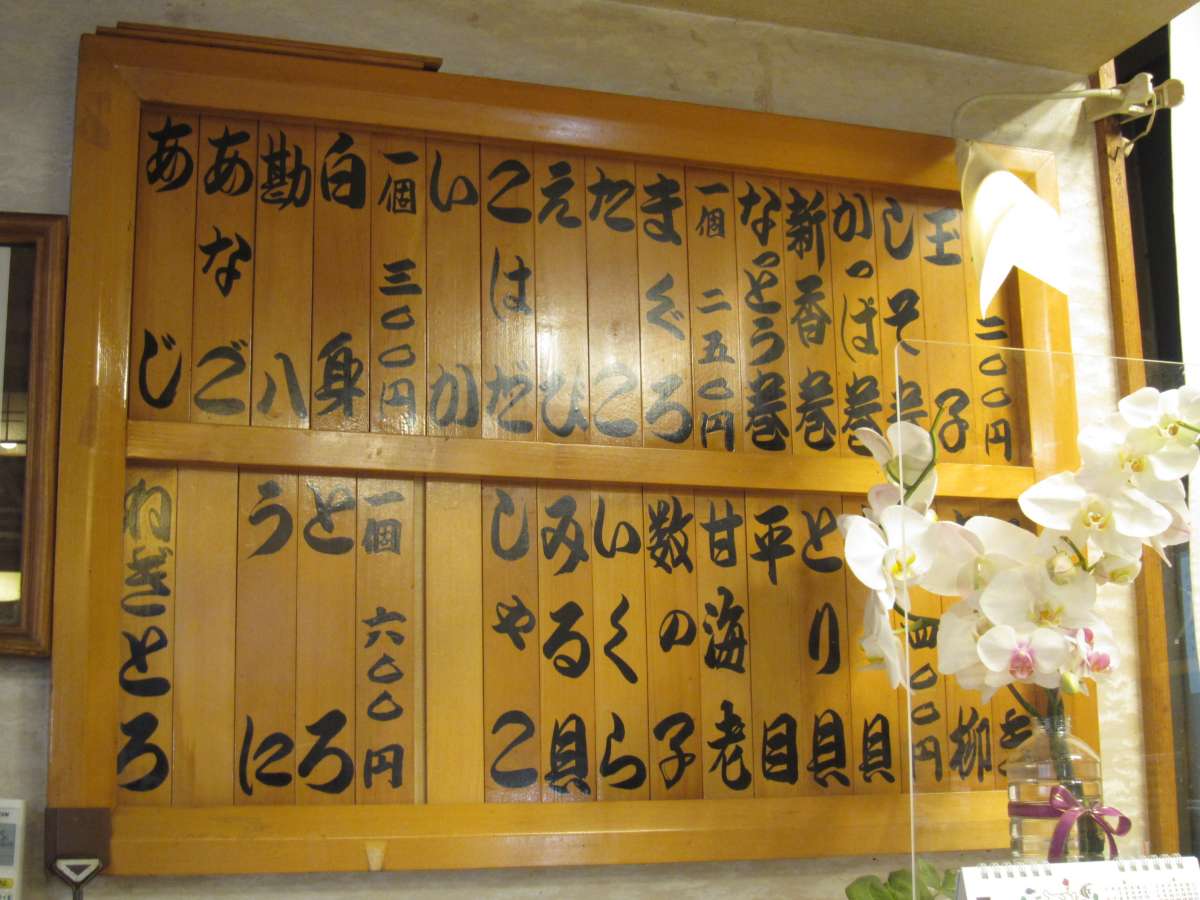 二〇〇円
玉子
しそ巻
かっぱ巻
新香巻
なっとう巻
一個 二五〇円
まぐろ
たこ
えび
こはだ
いか
一個 三〇〇円
白身
勘八
あなご
あじ
柳
四〇〇円
貝
とり貝
平目
甘海老
数の子
いくら
みる貝
しゃこ
一個 六〇〇円
とろ
うに
ねぎとろ